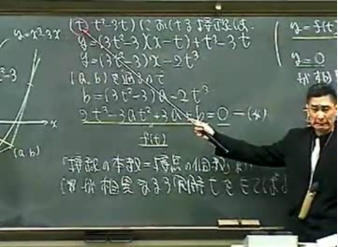 y=x³-3x
(t, t³-3t)における接線は、
y=(3t²-3)(x-t)+t³-3t
y=(3t²-3)x-2t³
(a,b)を通るので
b=(3t²-3)a-2t³
2t³-3at²+3a+b=0 ―(*)
f(t)
「接線の本数=接点の個数」より
(*)が相異なる3実解をもてばよ
(a,b)
x
y=f(t)
y=0